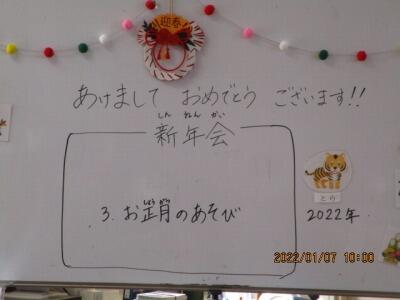 迎春
あけまして おめでとう ございます!!
しん ねん かい
新年会
しょうがつ
3. お正月のあそび
とら
2022年
2022/01/07 10:00